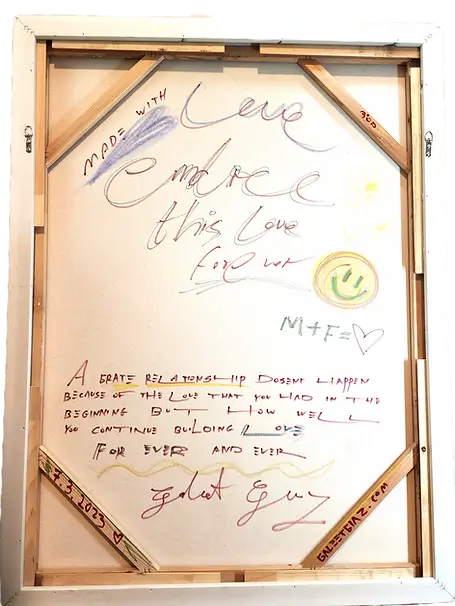 MADE WITH
Love
300
Embrace
this Love
Forever
M+F=♡
A GRATE RELATIONSHIP DOSENT HAPPEN
BECAUSE OF THE LOVE THAT YOU HAD IN THE
BEGINNING BUT HOW WELL
YOU CONTINUE BUILDING LOVE
FOR EVER AND EVER
7.3.2023 ♡